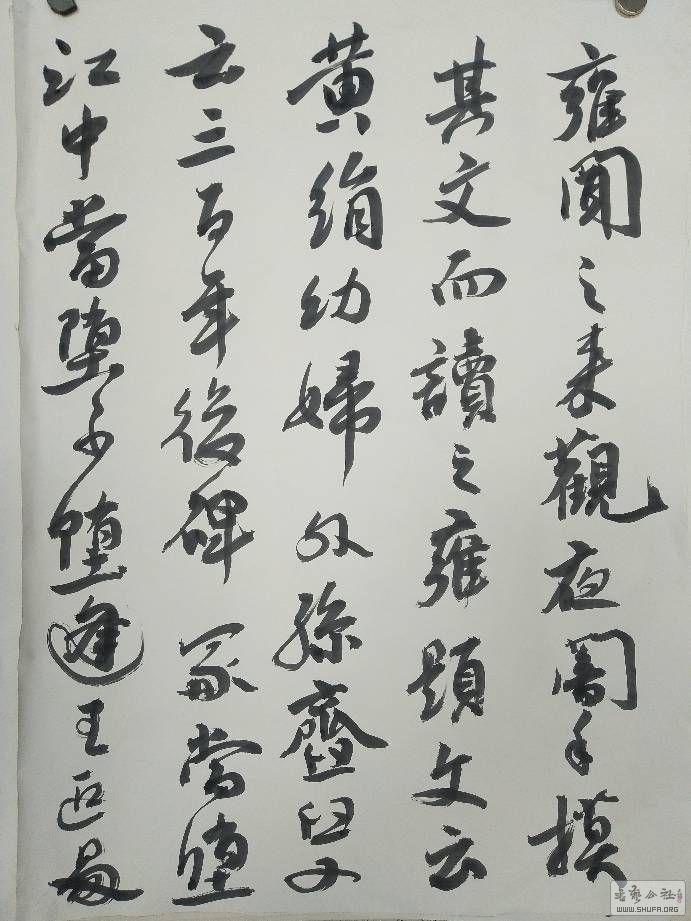 雍聞之来觀夜闇手摸
其文而讀之雍題文云
黃絹幼婦外孫齏臼又
云三百年後碑冢當墮
江中當墮不墮逢王叵
书艺公社
WWW.SHUFA.ORG